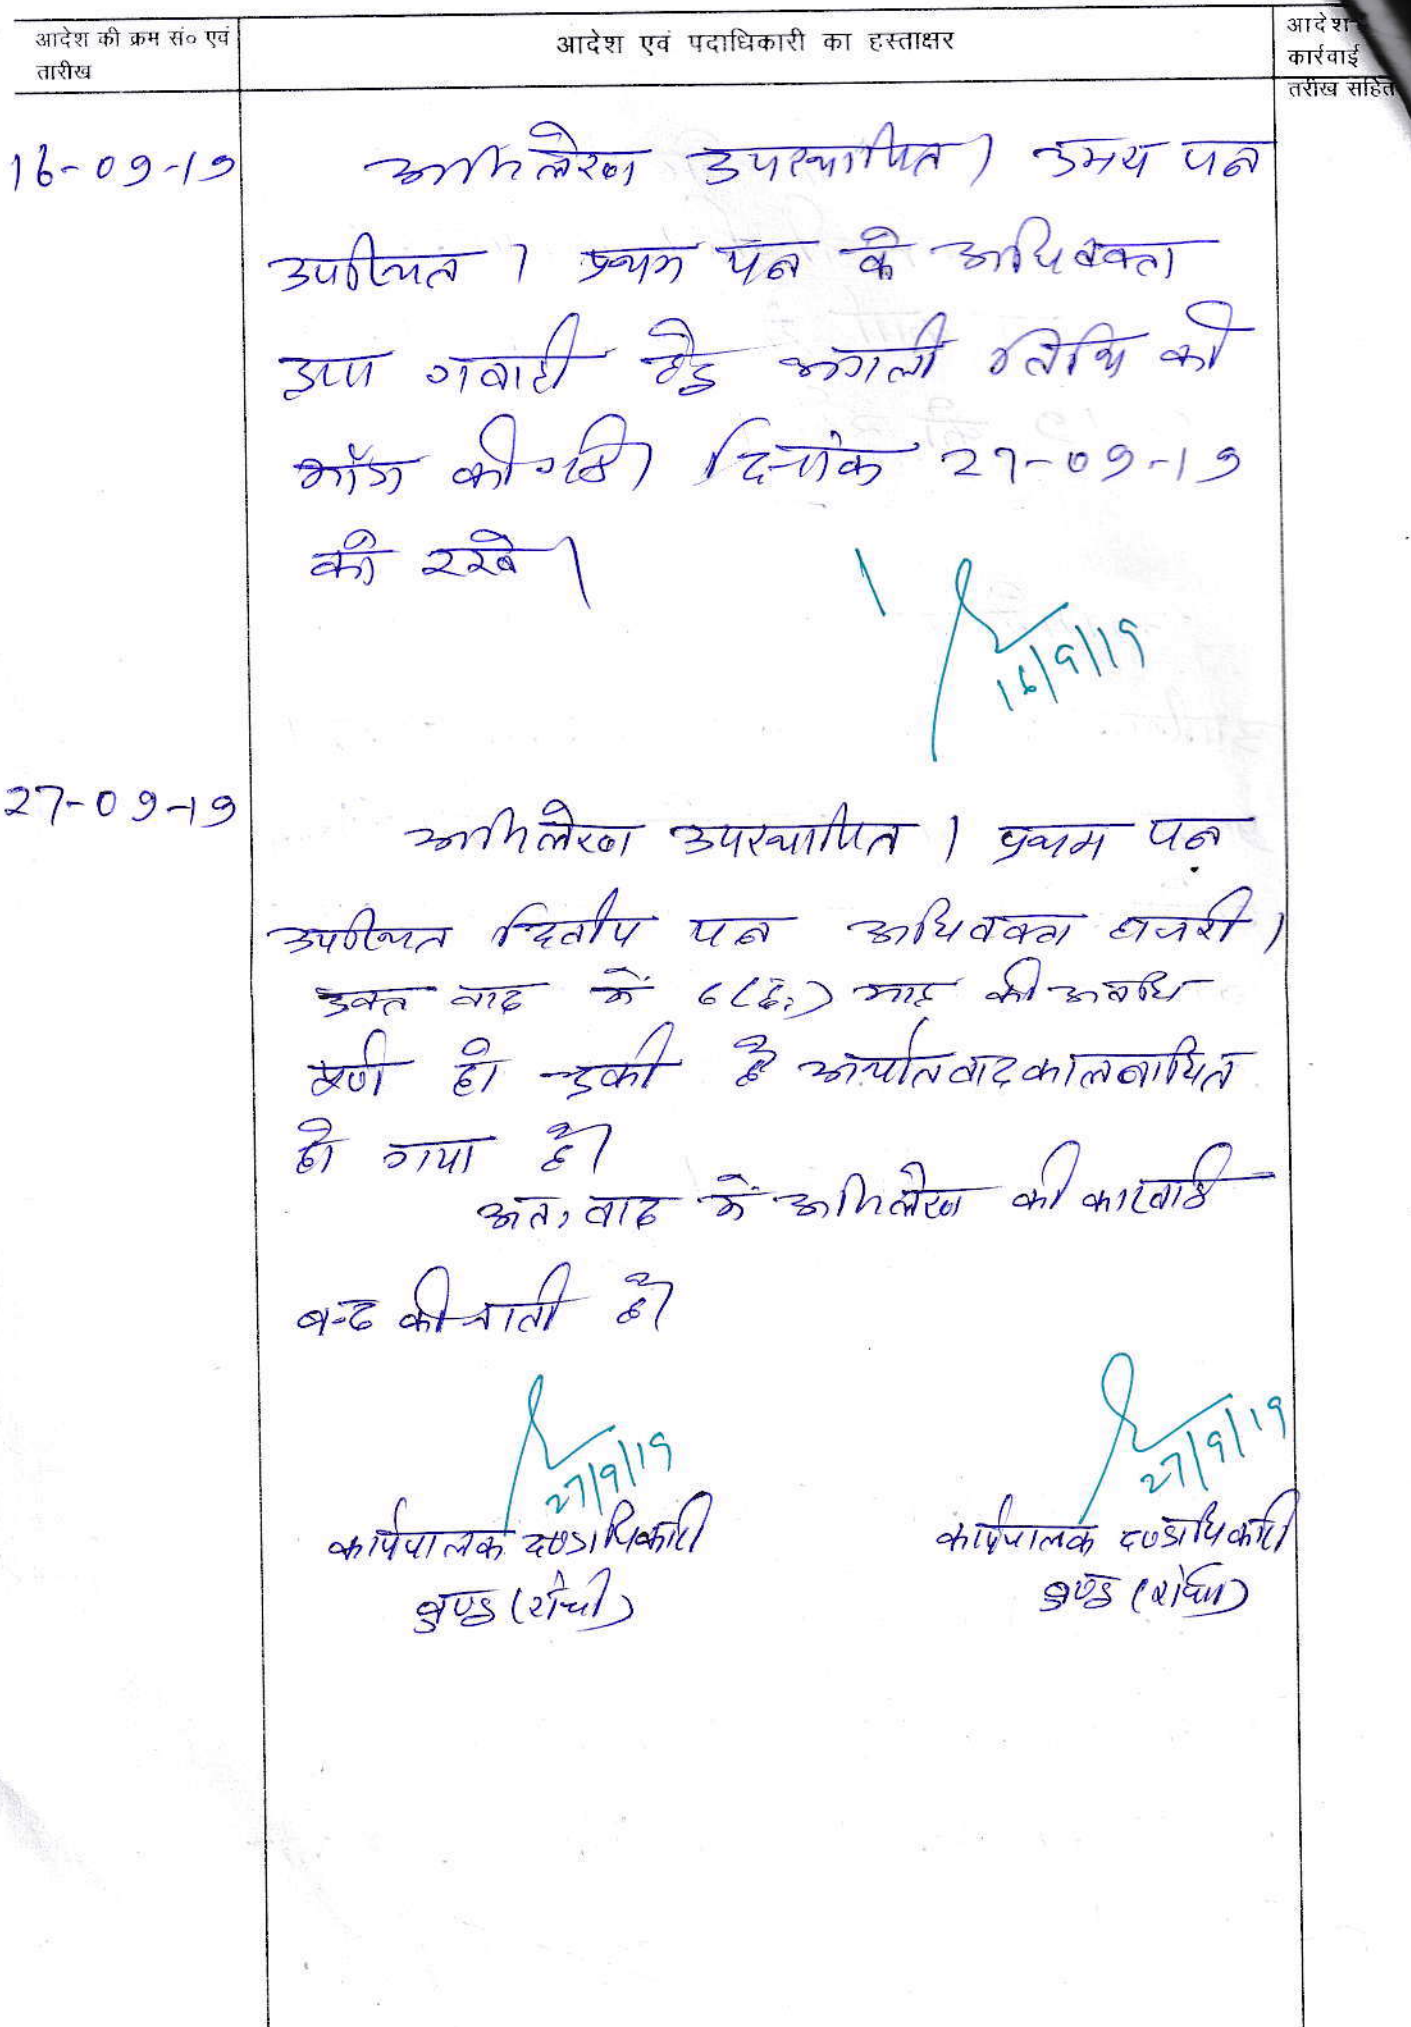 आदेश की क्रम सं० एवं
तारीख
आदेश एवं पदाधिकारी का हस्ताक्षर
आदेश
कार्रवाई
तरीख सहित
16-09-19
अभिलेख उपस्थापित। उभय पक्ष
उपस्थित। प्रथम पक्ष के अधिवक्ता
द्वारा गवाही हेतु अगली तिथि की
माँग की गई। दिनांक 27-09-19
को रखें।
16/9/19
27-09-19
अभिलेख उपस्थापित। प्रथम पक्ष
उपस्थित द्वितीय पक्ष अधिवक्ता हाजरी।
उक्त वाद में 6(छः) माह की अवधि
पूर्ण हो चुकी है अर्थात वाद कालबाधित
हो गया है।
अतः वाद में अभिलेख की कारवाई
बन्द की जाती है।
27/9/19
27/9/19
कार्यपालक दण्डाधिकारी
बुण्डू (राँची)
कार्यपालक दण्डाधिकारी
बुण्डू (राँची)